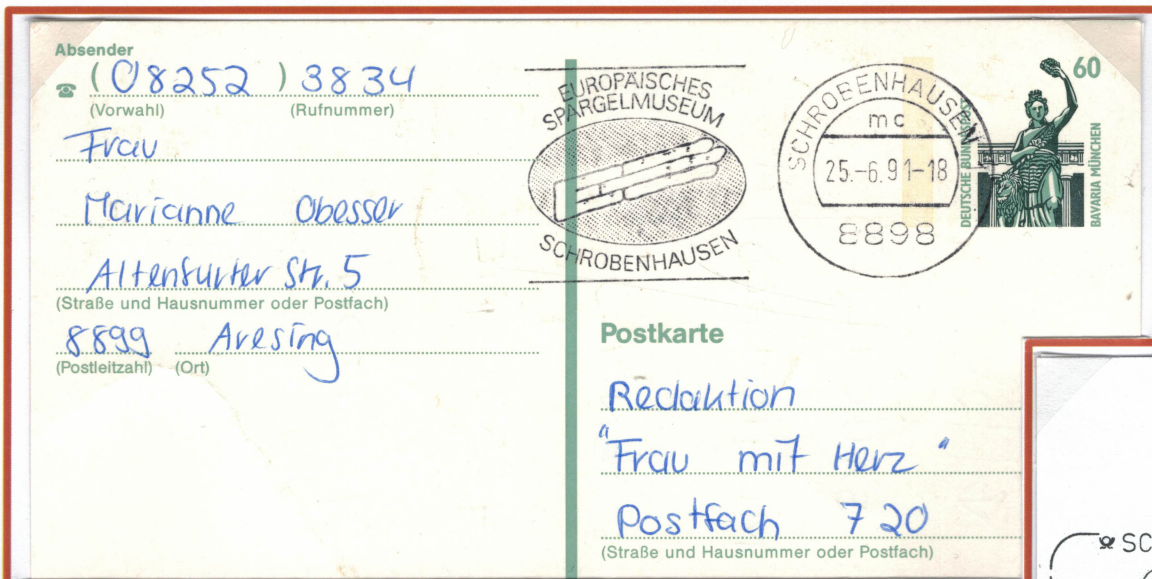 Absender
(08252) 3834
(Vorwahl) (Rufnummer)
Frau
Marianne Obesser
Altenfurter Str. 5
(Straße und Hausnummer oder Postfach)
8899 Aresing
(Postleitzahl) (Ort)
EUROPÄISCHES
SPARGELMUSEUM
SCHROBENHAUSEN
SCHROBENHAUSEN
mc
25.-6.91-18
8898
60
DEUTSCHE BUNDESPOST
BAVARIA MÜNCHEN
Postkarte
Redaktion
"Frau mit Herz"
Postfach 720
(Straße und Hausnummer oder Postfach)
SC